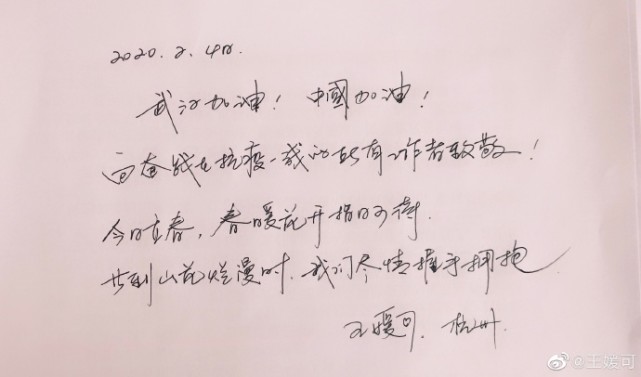 2020.2.4日.
武汉加油！中國加油！
向奋战在抗疫一线的所有工作者致敬！
今日立春，春暖花开指日可待.
待到山花烂漫时.我们尽情握手拥抱
王媛可.杭州.
@王媛可